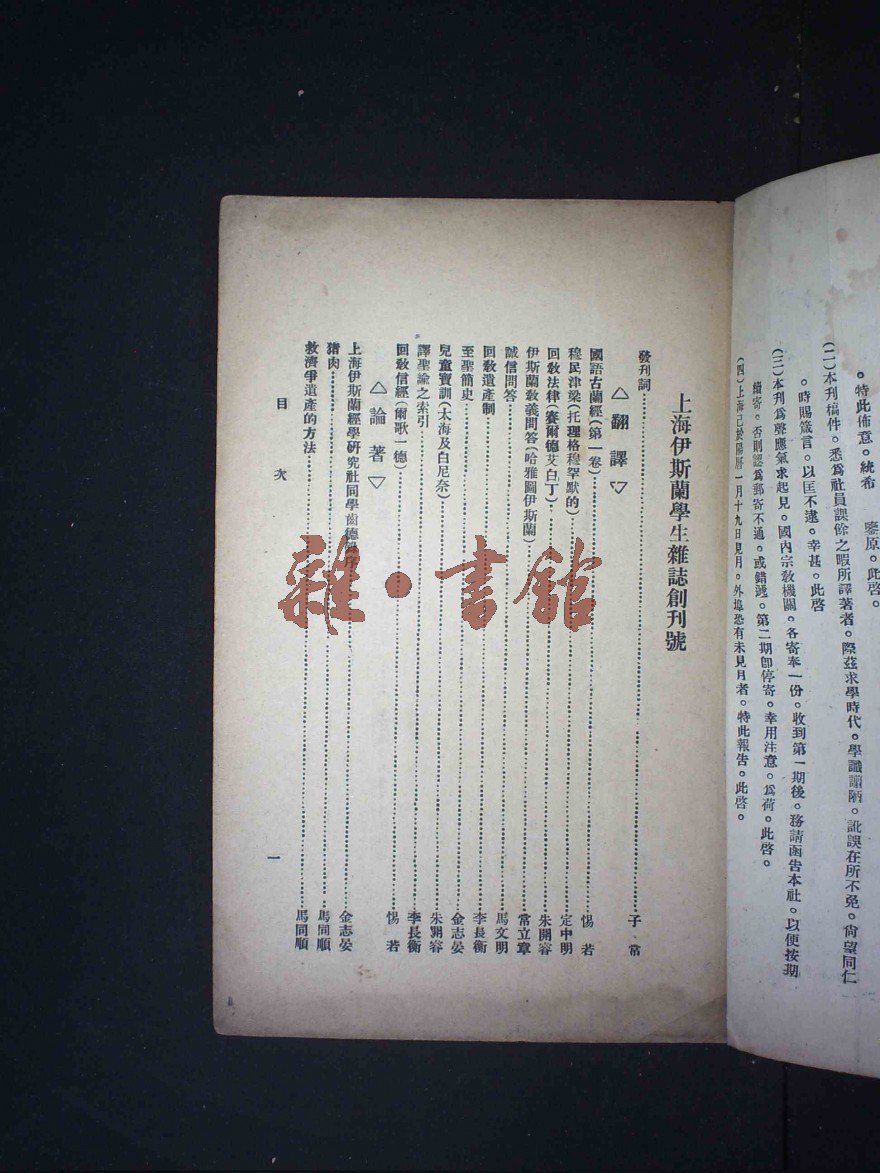 。特此佈意。統希　鑒原。此啓。
(二)本刊稿件。悉爲社員課餘之暇所譯著者。際茲求學時代。學識譾陋。訛誤在所不免。尙望同仁
。時賜箴言。以匡不逮。幸甚。此啓
(三)本刊爲聲應氣求起見。國內宗敎機關。各寄奉一份。收到第一期後。務請函告本社。以便按期
續寄。否則認爲郵寄不通。或錯遞。第二期卽停寄。幸用注意。爲荷。此啓。
(四)上海已於陽曆一月十九日見月。外埠恐有未見月者。特此報告。此啓。
上海伊斯蘭學生雜誌創刊號
發刊詞…………子　常
△翻　譯▽
國語古蘭經(第一卷)…………惕　若
穆民津梁(托理格穆罕默的)…………定中明
回敎法律(賽爾德艾白丁)…………朱開容
伊斯蘭敎義問答(哈雅圖伊斯蘭)…………常立章
誠信問答…………馬文明
回敎遺產制…………李長衡
至聖簡史…………金志晏
兒童寶訓(太海及白尼奈)…………朱開容
譯聖諭之索引…………李長衡
回敎信經(爾歌一德)…………惕　若
△論　著▽
上海伊斯蘭經學硏究社同學齒德錄序…………金志晏
猪肉…………馬同順
救濟爭遺產的方法…………馬同順
目　次
一
雜·書館